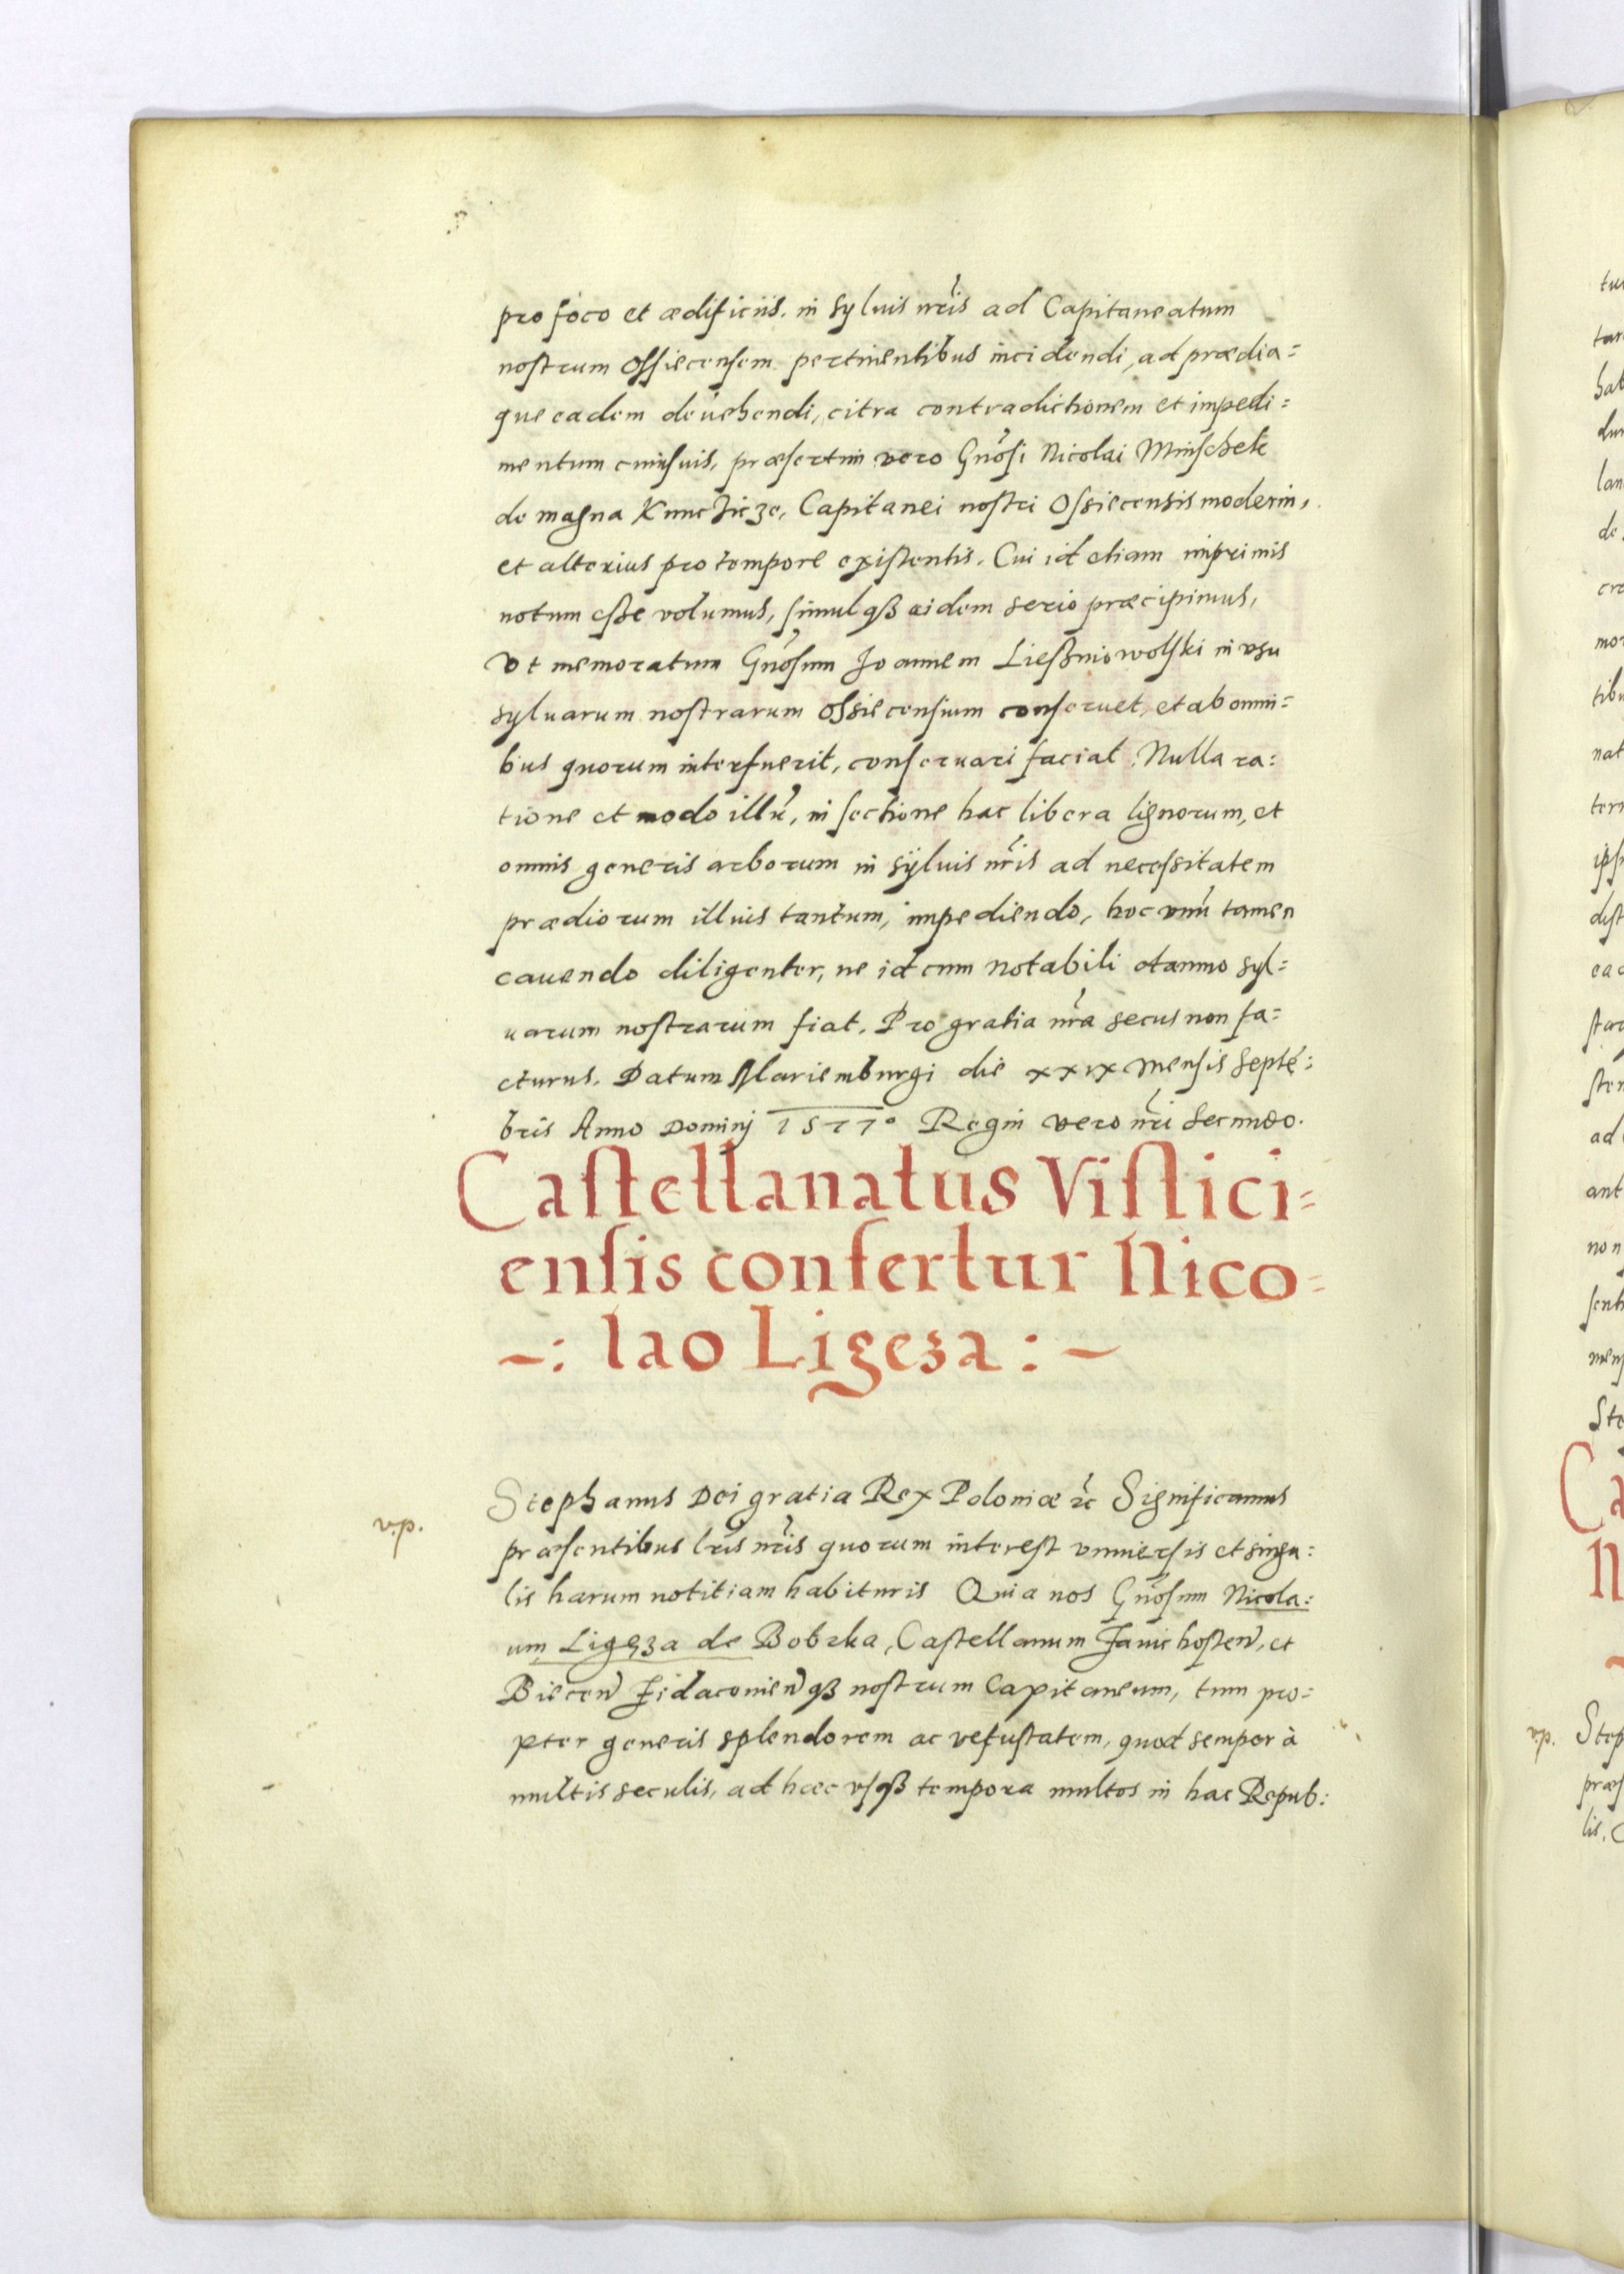 pro foco et ædificiis, in sylvis nr̃is ad Capitaneatum
nostrum Ossiecensem pertinentibus incidendi, ad prædia=
que eadem deuehendi, citra contradictionem et impedi=
mentum cuiusuis, præsertim vero Gnõsi Nicolai Minschek
de magna Kunczicze, Capitanei nostri Ossiecensis moderni,
et alterius pro tempore existentis. Cui id etiam imprimis
notum esse volumus, simulqȝ eidem serio præcipimus,
vt memoratum Gnõsum Joannem Liessniowolski in vsu
syluarum nostrarum Ossiecensium conseruet, et ab omni=
bus quorum interfuerit, conseruari faciat. Nulla ra=
tione et modo illũ, in sectione hac libera lignorum, et
omnis generis arborum in sÿluis nr̃is ad necessitatem
prædiorum illius tantum, impediendo, hoc vnũ tamen
cauendo diligenter, ne id cum notabili damno syl=
uarum nostrarum fiat. Pro gratia nr̃a secus non fa=
cturus. Datum Mariemburgi die xxix mensis Septẽ=
bris Anno Dominj 1577° Regni vero nr̃i Secundo.
Castellanatus Vislici=
ensis confertur Nico=
–: lao Ligeza : –
Stephanus Dei gratia Rex Poloniæ ꝛc̃ Significamus
v.p.
præsentibus lr̃is nr̃is quorum interest vniuersis et singu=
lis harum notitiam habituris Quia nos Gnõsum Nicola=
um Ligęza de Bobrka, Castellanum Zauichosten̄, et
Biecen̄ Zidaconien̄qȝ nostrum Capitaneum, tum pro=
pter generis splendorem ac vetustatem, quod semper à
multis seculis, ad hæc vsqȝ tempora multos in hac Repub: